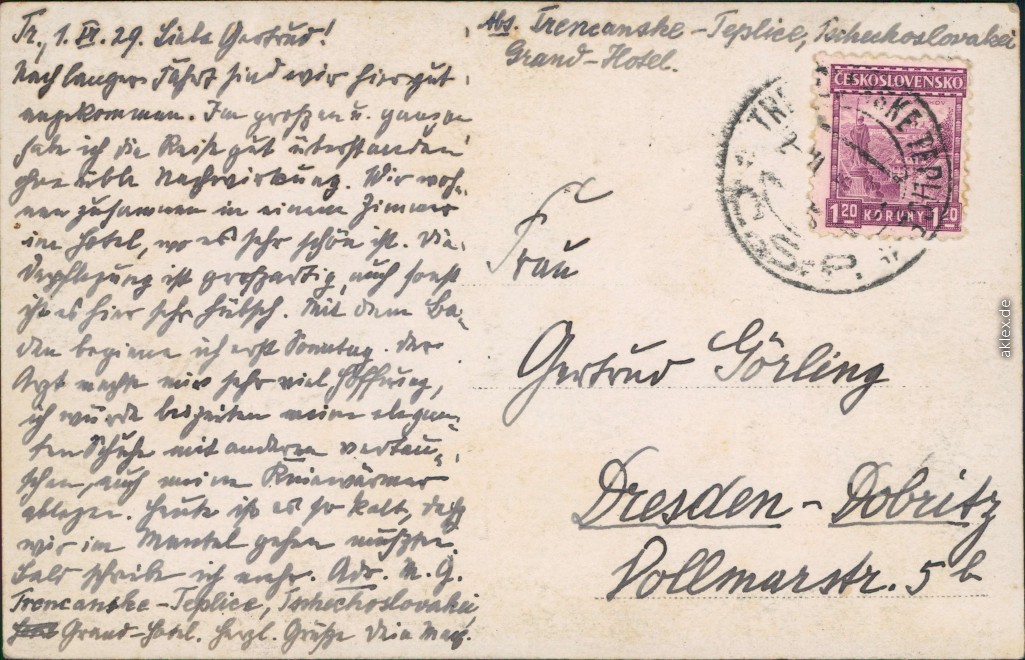 Tr., 1. VI. 29. Liebe Gertrud!
Nach langer Fahrt sind wir hier gut
angekommen. Im großen u. ganzen
habe ich die Reise gut überstanden
ohne üble Nachwirkung. Wir woh-
nen zusammen in einem Zimmer
im Hotel, wo es sehr schön ist. Die
Verpflegung ist großartig, auch sonst
ist es hier sehr hübsch. Mit dem Ba-
den beginne ich erst Sonntag. Der
Arzt machte mir sehr viel Hoffnung,
ich würde beizeiten meine elegan-
ten Schuhe mit anderen vertau-
schen, auch meine Kniewärmer
ablegen. Heute ist es so kalt, daß
wir im Mantel gehen mußten.
Bald schreibe ich mehr. Adr. M. G.
Trencanske-Teplice, Tschechoslovakei,
Grand-Hotel. Herzl. Grüße Dein
Abs. Trencanske-Teplice, Tschechoslovakei
Grand-Hotel.
ČESKOSLOVENSKO
1.20 KORUNY 1.20
Frau
Gertrud Görling
Dresden-Dobritz
Vollmarstr. 5b
aklex.de